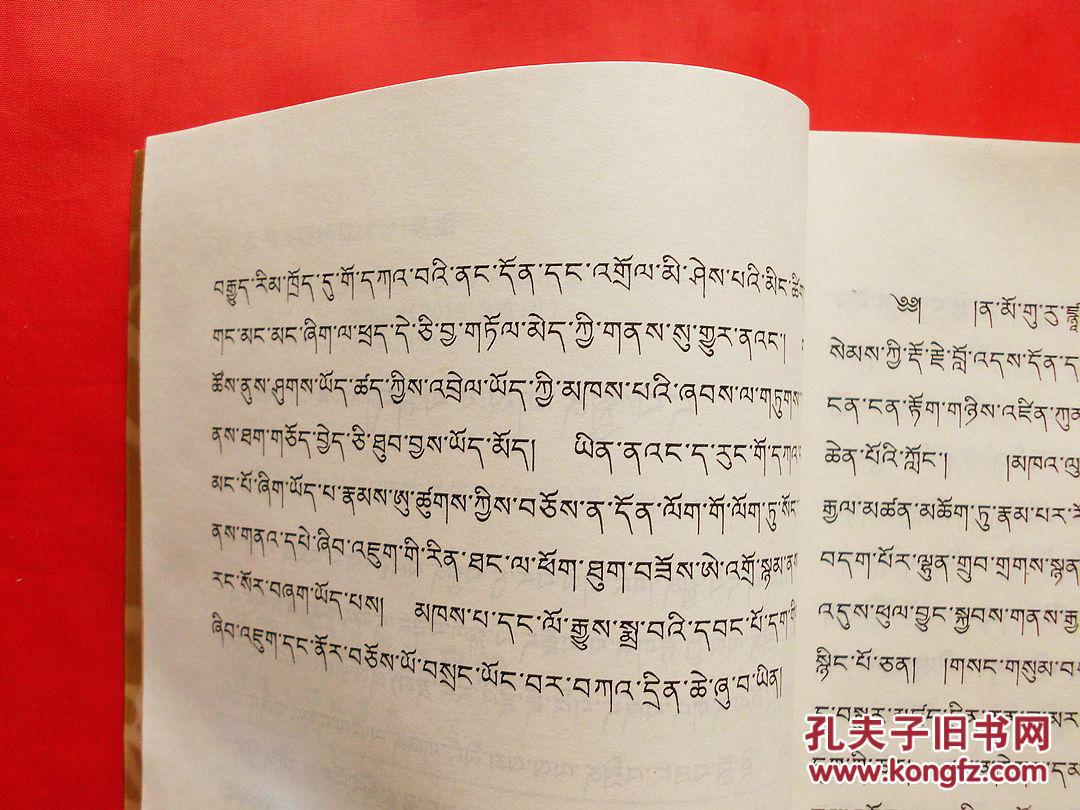 བརྒྱུད་རིམ་ཁྲོད་དུ་གོ་དཀའ་བའི་ནང་དོན་དང་འགྲོལ་མི་ཤེས་པའི་མིང་ཚིག
གང་མང་མང་ཞིག་ལ་ཕྲད་དེ་ཅི་བྱ་གཏོལ་མེད་ཀྱི་གནས་སུ་གྱུར་ནའང་།
ཚོས་ནུས་ཤུགས་ཡོད་ཚད་ཀྱིས་འབྲེལ་ཡོད་ཀྱི་མཁས་པའི་ཞབས་ལ་གཏུགས་
ནས་ཐག་གཅོད་བྱེད་ཅི་ཐུབ་བྱས་ཡོད་མོད། ཡིན་ནའང་ད་རུང་གོ་དཀའ་
མང་པོ་ཞིག་ཡོད་པ་རྣམས་ཨུ་ཚུགས་ཀྱིས་བཅོས་ན་དོན་ལོག་གོ་ལོག་ཏུ་སོང་
ནས་གནའ་དཔེ་ཞིབ་འཇུག་གི་རིན་ཐང་ལ་ཕོག་ཐུག་བཟོས་ཨེ་འགྲོ་སྙམ་ནས
རང་སོར་བཞག་ཡོད་པས། མཁས་པ་དང་ལོ་རྒྱུས་སྨྲ་བའི་དབང་པོ་དག་གི
ཞིབ་འཇུག་དང་ནོར་བཅོས་ཡོ་བསྲང་ཡོང་བར་བཀའ་དྲིན་ཆེ་ཞུ་བ་ཡིན།
༄༅། །ན་མོ་གུ་རུ་
སེམས་ཀྱི་རྡོ་རྗེ་བློ་འདས་དོན་ད
ངན་ངན་རྟོག་གཉིས་འཛིན་ཀུམ
ཆེན་པོའི་ཀློང་། །མཁའ་ལྟ
རྒྱལ་མཚན་མཆོག་ཏུ་རྣམ་པར་
བདག་པོར་ལྷུན་གྲུབ་གྲགས་སྙན
འདུས་ཕུལ་བྱུང་སྐྱབས་གནས་རྒྱ
སྙིང་པོ་ཅན། །གསང་གསུམ་
孔夫子旧书网
www.kongfz.com